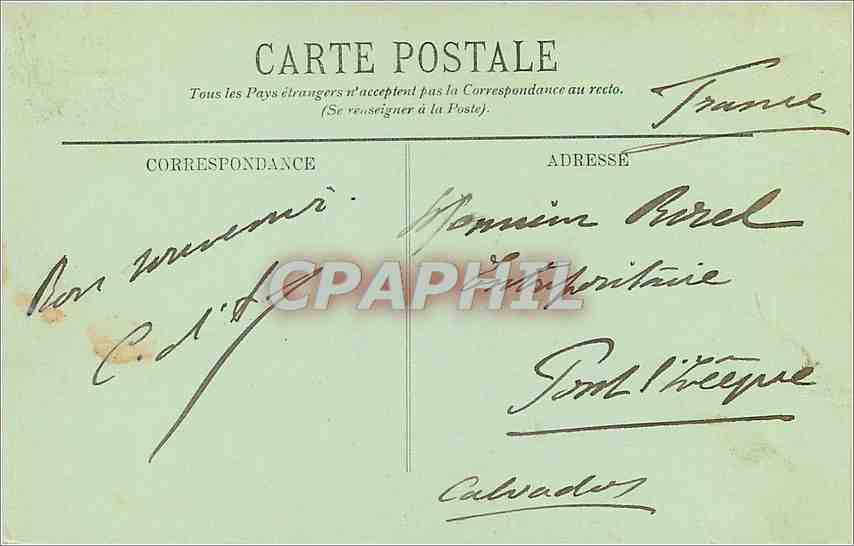 CARTE POSTALE
Tous les Pays étrangers n'acceptent pas la Correspondance au recto.
(Se renseigner à la Poste).
France
CORRESPONDANCE
ADRESSE
Bon souvenir.
C. d'
Monsieur
CPAPHIL
Pont l'Evêque
Calvados